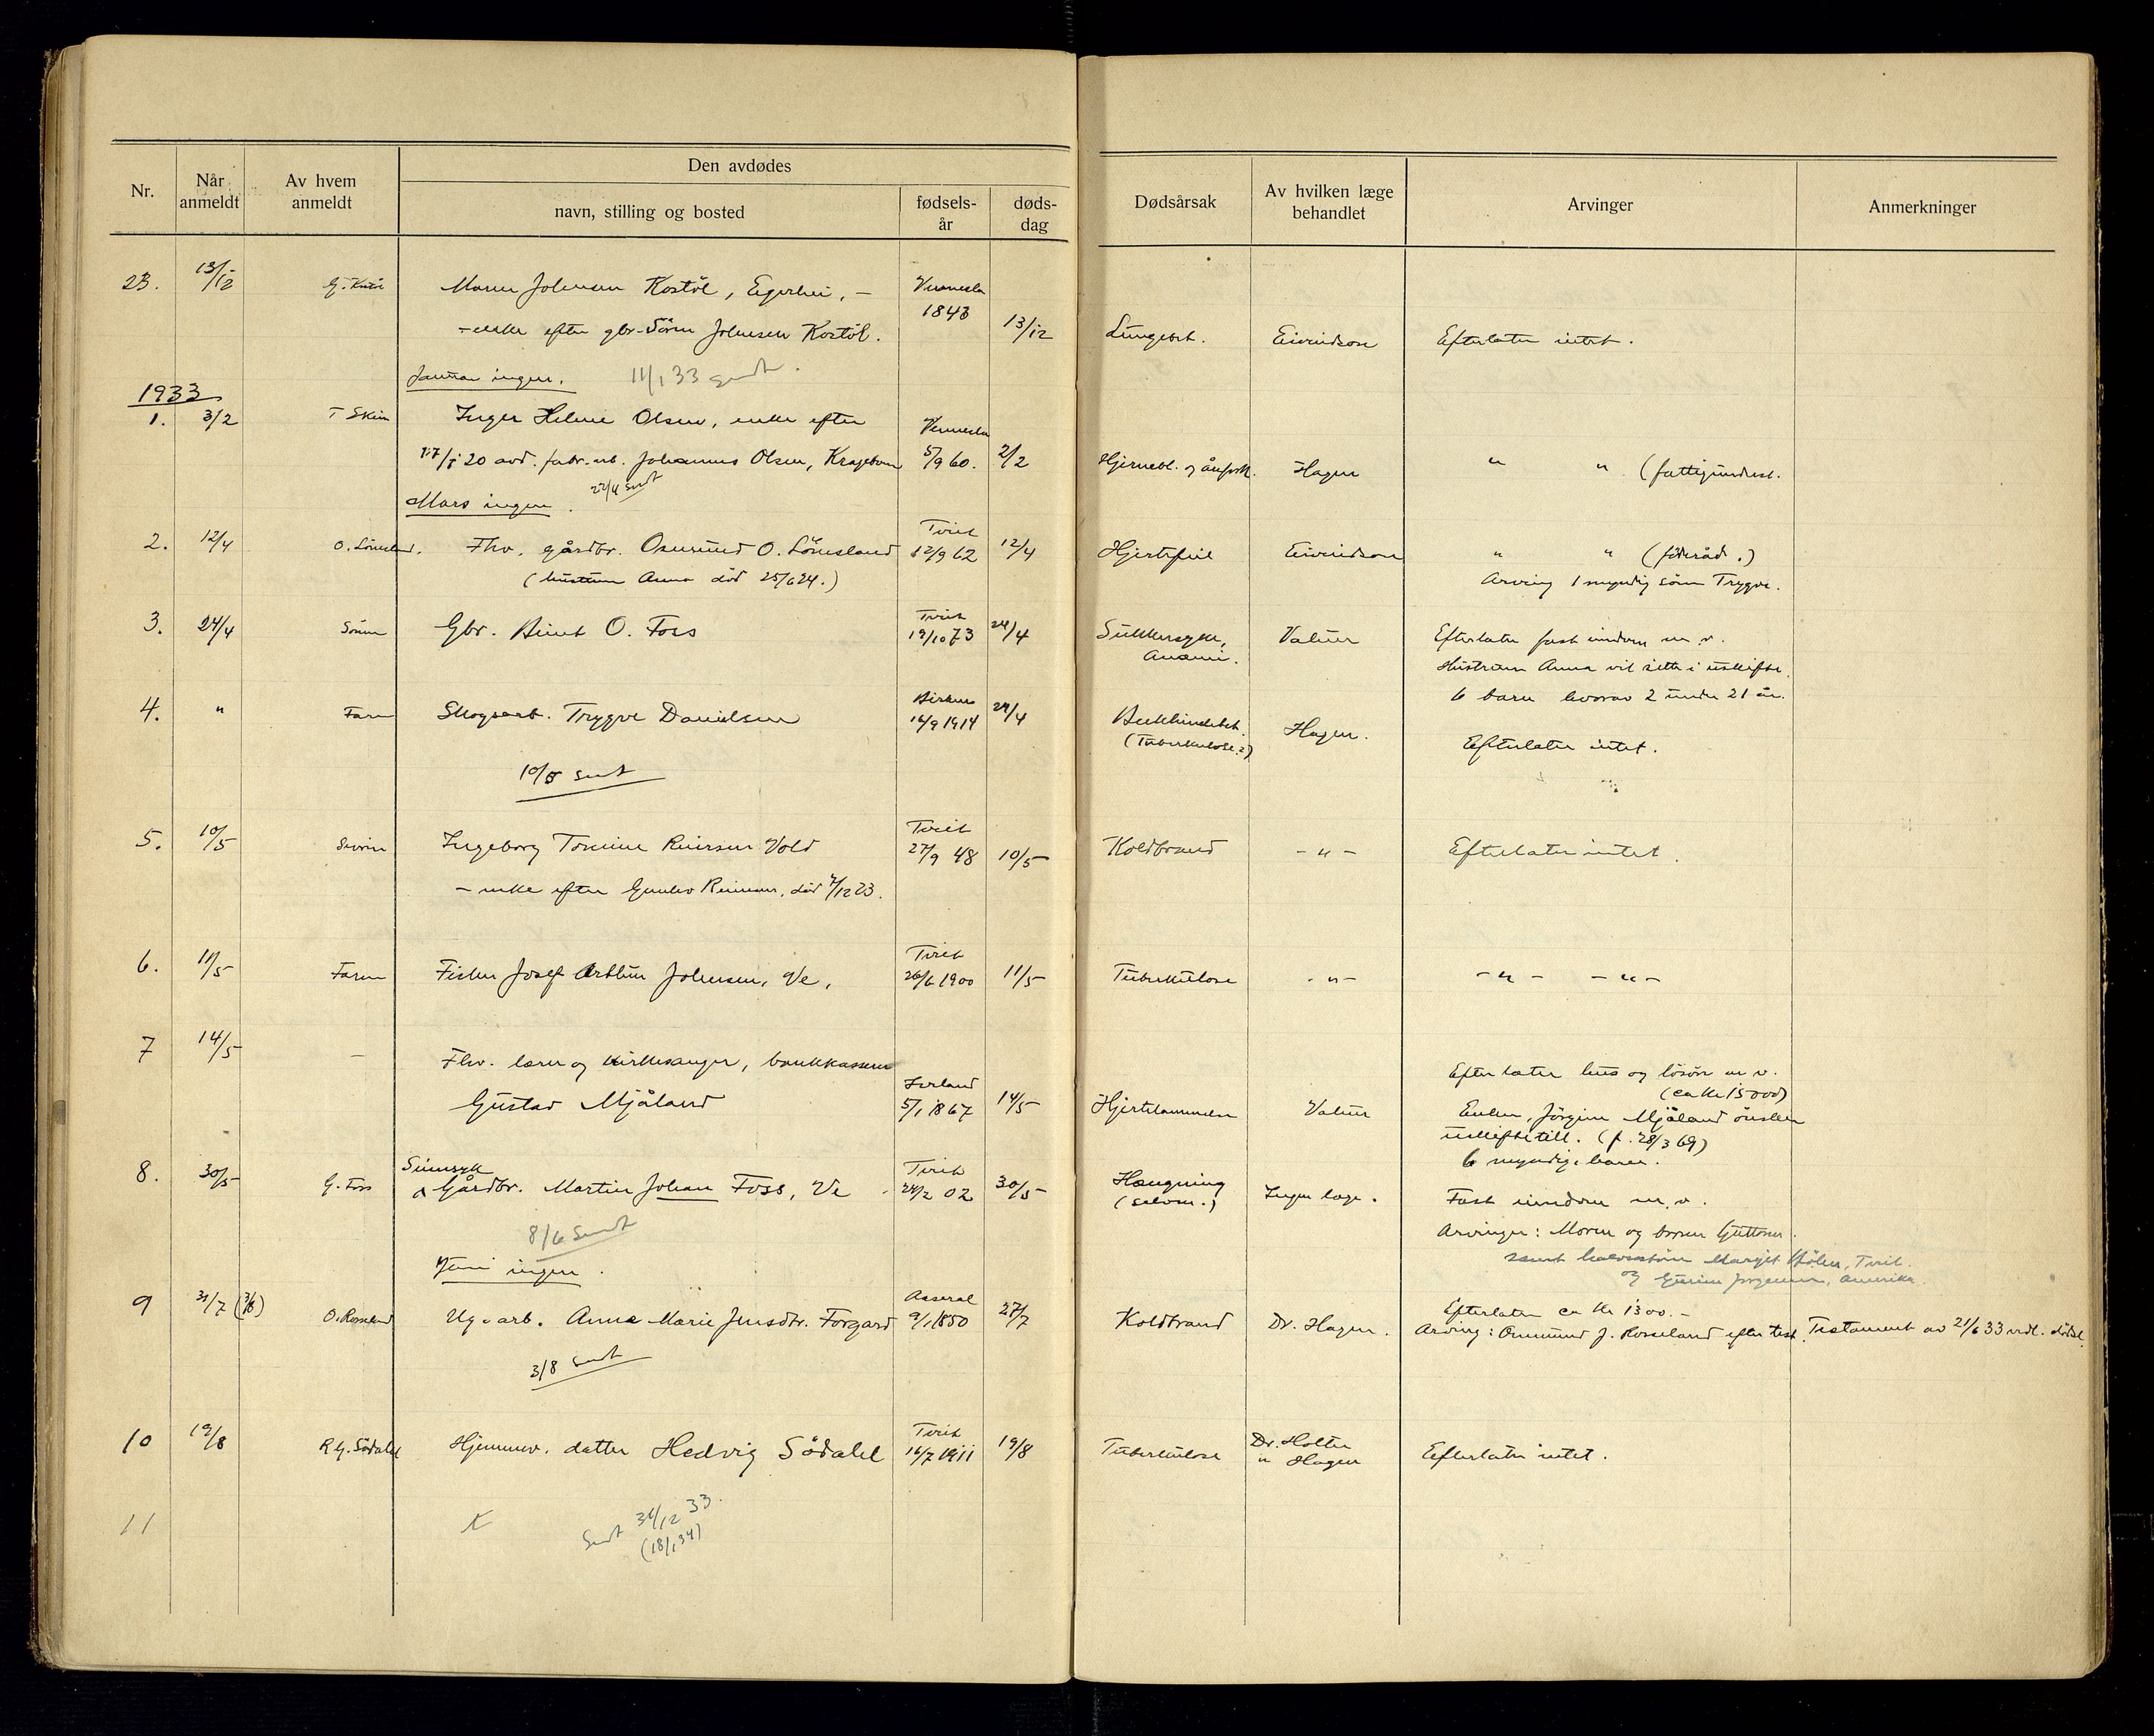 Nr.
Når anmeldt
Av hvem anmeldt
Den avdødes
navn, stilling og bosted
fødsels-år
døds-dag
Dødsårsak
Av hvilken læge behandlet
Arvinger
Anmerkninger
23. 13/12 Maren Johnsen Kostöl, Egerhei, – Vennesla 1843
– enke efter gbr. Sören Johnsen Kostöl. 13/12 Lungebet. Eivindson Efterlater intet.
Januar ingen. 11/1 33 sendt.
1933
1. 3/2 T Skin Inger Helene Olsen, enke efter Vennesla
17/1 20 avd. fabr.arb. Johannes Olsen, 5/9 60. 2/2 Hjernebl. og Hagen " " (fattigunderst.
Mars ingen. 22/4 sendt
2. 12/4 O. Lömsland. Fhv. gårdbr. Osmund O. Lömsland Tveit 12/9 62 12/4 Hjertefeil Eivindson " " (föderåd.)
(hustrun Anna död 25/6 24.) Arving 1 myndig sönn Trygve.
3. 24/4 Sönn Gbr. Bent O. Foss Tveit 19/10 73 24/4 Sukkersyke, Anæmi. Valeur Efterlater fast eiendom m. v.
Hustruen Anna vil sitte i uskifte.
6 barn hvorav 2 under 21 år.
4. " Faren Skogsarb. Trygve Danielsen Birkenes 16/9 1914 24/4 Bukhindebet. (Tuberkulose?) Hagen. Efterlater intet.
10/5 sendt
5. 10/5 Ingeborg Tomine Reiersen Vold Tveit 27/9 48 10/5 Koldbrand – " – Efterlater intet.
– enke efter Gunlev Reiersen, död 4/12 23.
6. 11/5 Faren Fisker Josef Arthur Johnsen, Ve, Tveit 26/6 1900 11/5 Tuberkulose – " – – " – – " –
7 14/5 – Fhv. lærer og kirkesanger, bankkasserer
Gustav Mjåland Iveland 5/1 1867 14/5 Hjertelammelse Valeur Efterlater hus og lösöre m. v.
(ca kr 15000)
Enken, Jörgine Mjåland önsker
uskiftetill. (f. 28/3 69)
6 myndige barn.
8. 30/5 G. Foss Sinnsyk Gårdbr. Martin Johan Foss, Ve Tveit 24/2 02 30/5 Hængning (selvm.) Ingen læge. Fast eiendom m. v.
8/6 sendt Arvinger: Moren og broren Guttorm.
samt halvsöstre Margit Tveit.
og Jörgensen, Amerika.
Juni ingen.
9 31/7 (3/8) O. Rosseland Ug. arb. Anna Marie Jensdtr. Forgard Aaseral 9/1 1850 27/7 Koldbrand Dr. Hagen. Efterlater ca kr 1300.–
Arving: Osmund J. Rosseland efter test. Testament av 21/6 33 vedl. dödsf.
3/8 sendt
10 19/8 R G. Södahl Hjemmev. datter Hedvig Södahl Tveit 16/7 1911 19/8 Tuberkulose Dr. Holter " Hagen Efterlater intet.
11 Sendt 31/12 33.
(18/1 34)